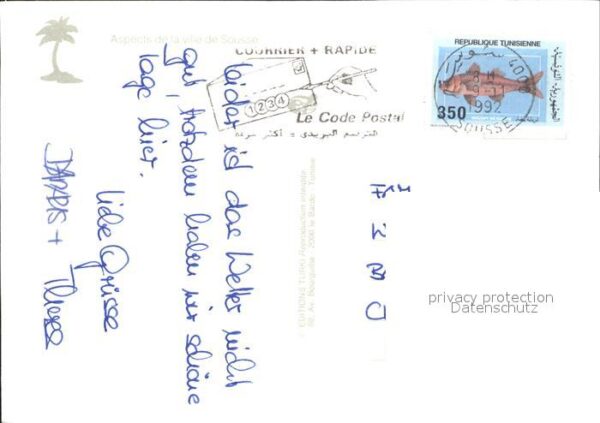 Aspects de la ville de Sousse
COURRIER + RAPIDE
1234
Le Code Postal
الترقيم البريدي = أكثر سرعة
REPUBLIQUE TUNISIENNE
الجمهورية التونسية
350
سوسة
4000
1992
SOUSSE
leider ist das Wetter nicht
gut, trotzdem haben wir schöne
Tage hier.
liebe Grüsse
EDITIONS TURKI Reproduction interdite
Av. Bourguiba - 2000 le Bardo - Tunisie
privacy protection
Datenschutz